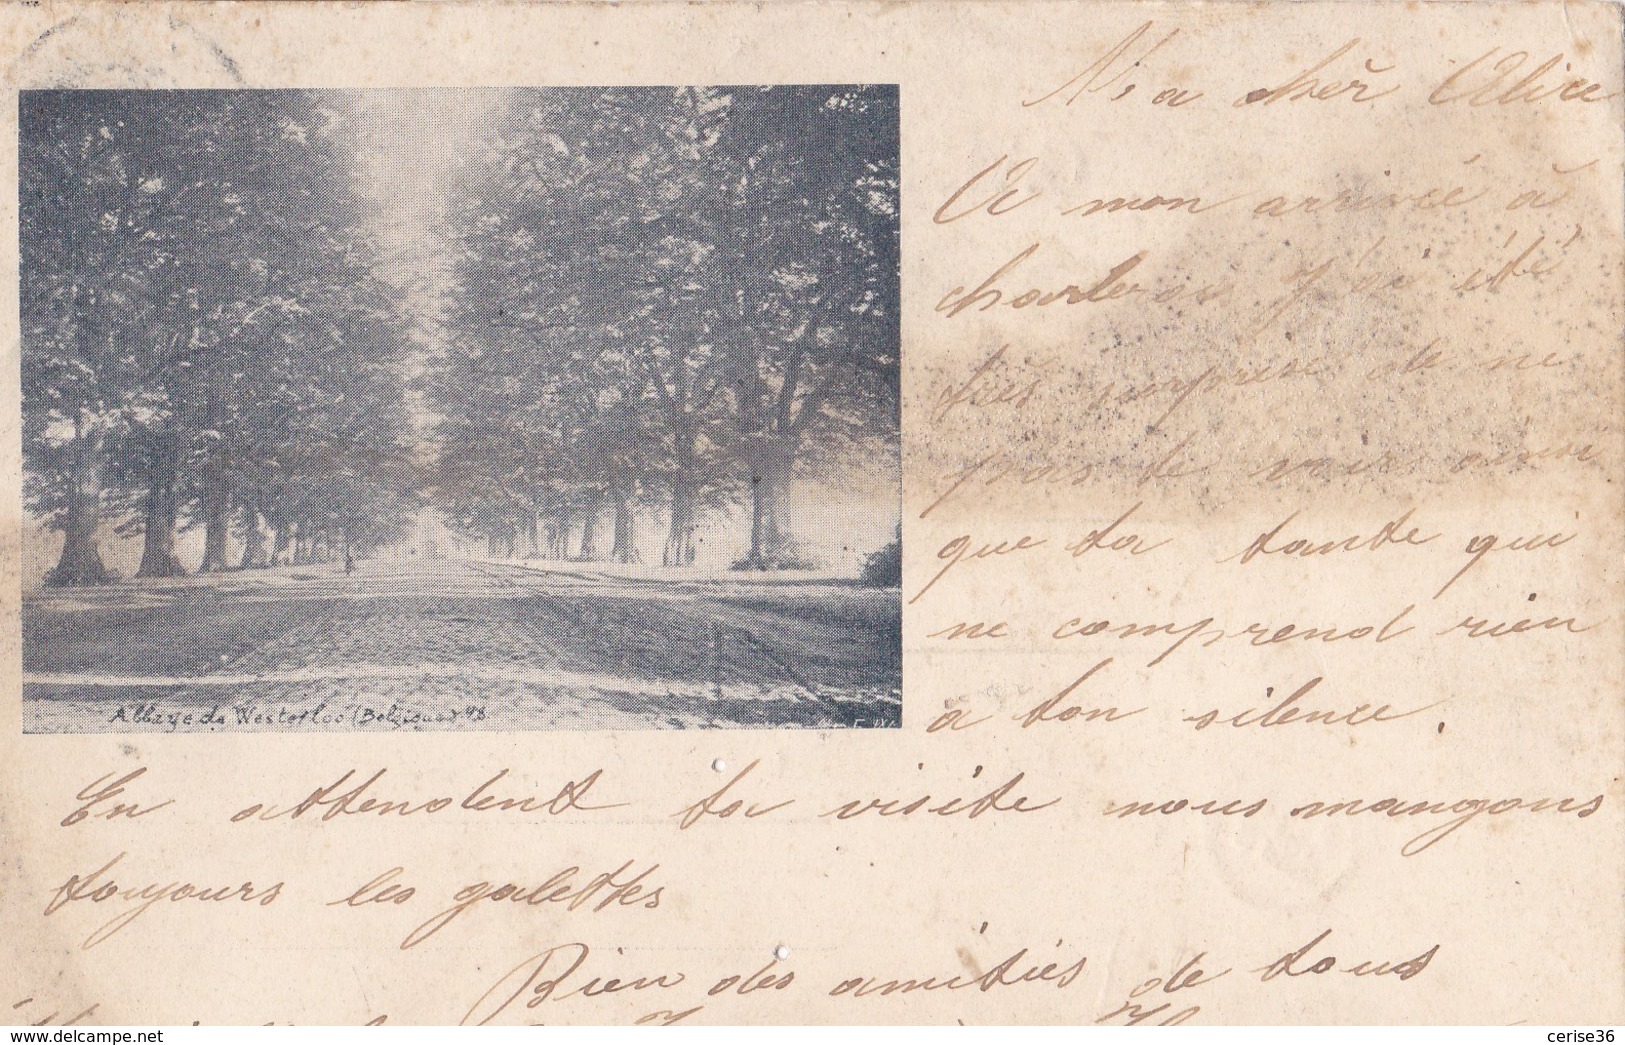 Ma chèr Alice
A mon arrivée à
charleroi j'ai été
très surprise de ne
pas te voir ainsi
que ta tante qui
ne comprend rien
a ton silence.
Abbaye de Westerloo (Belgique) 48
En attendent ta visite nous mangons
toujours les galettes
Bien des amitiés de tous
delcampe.net
cerise36